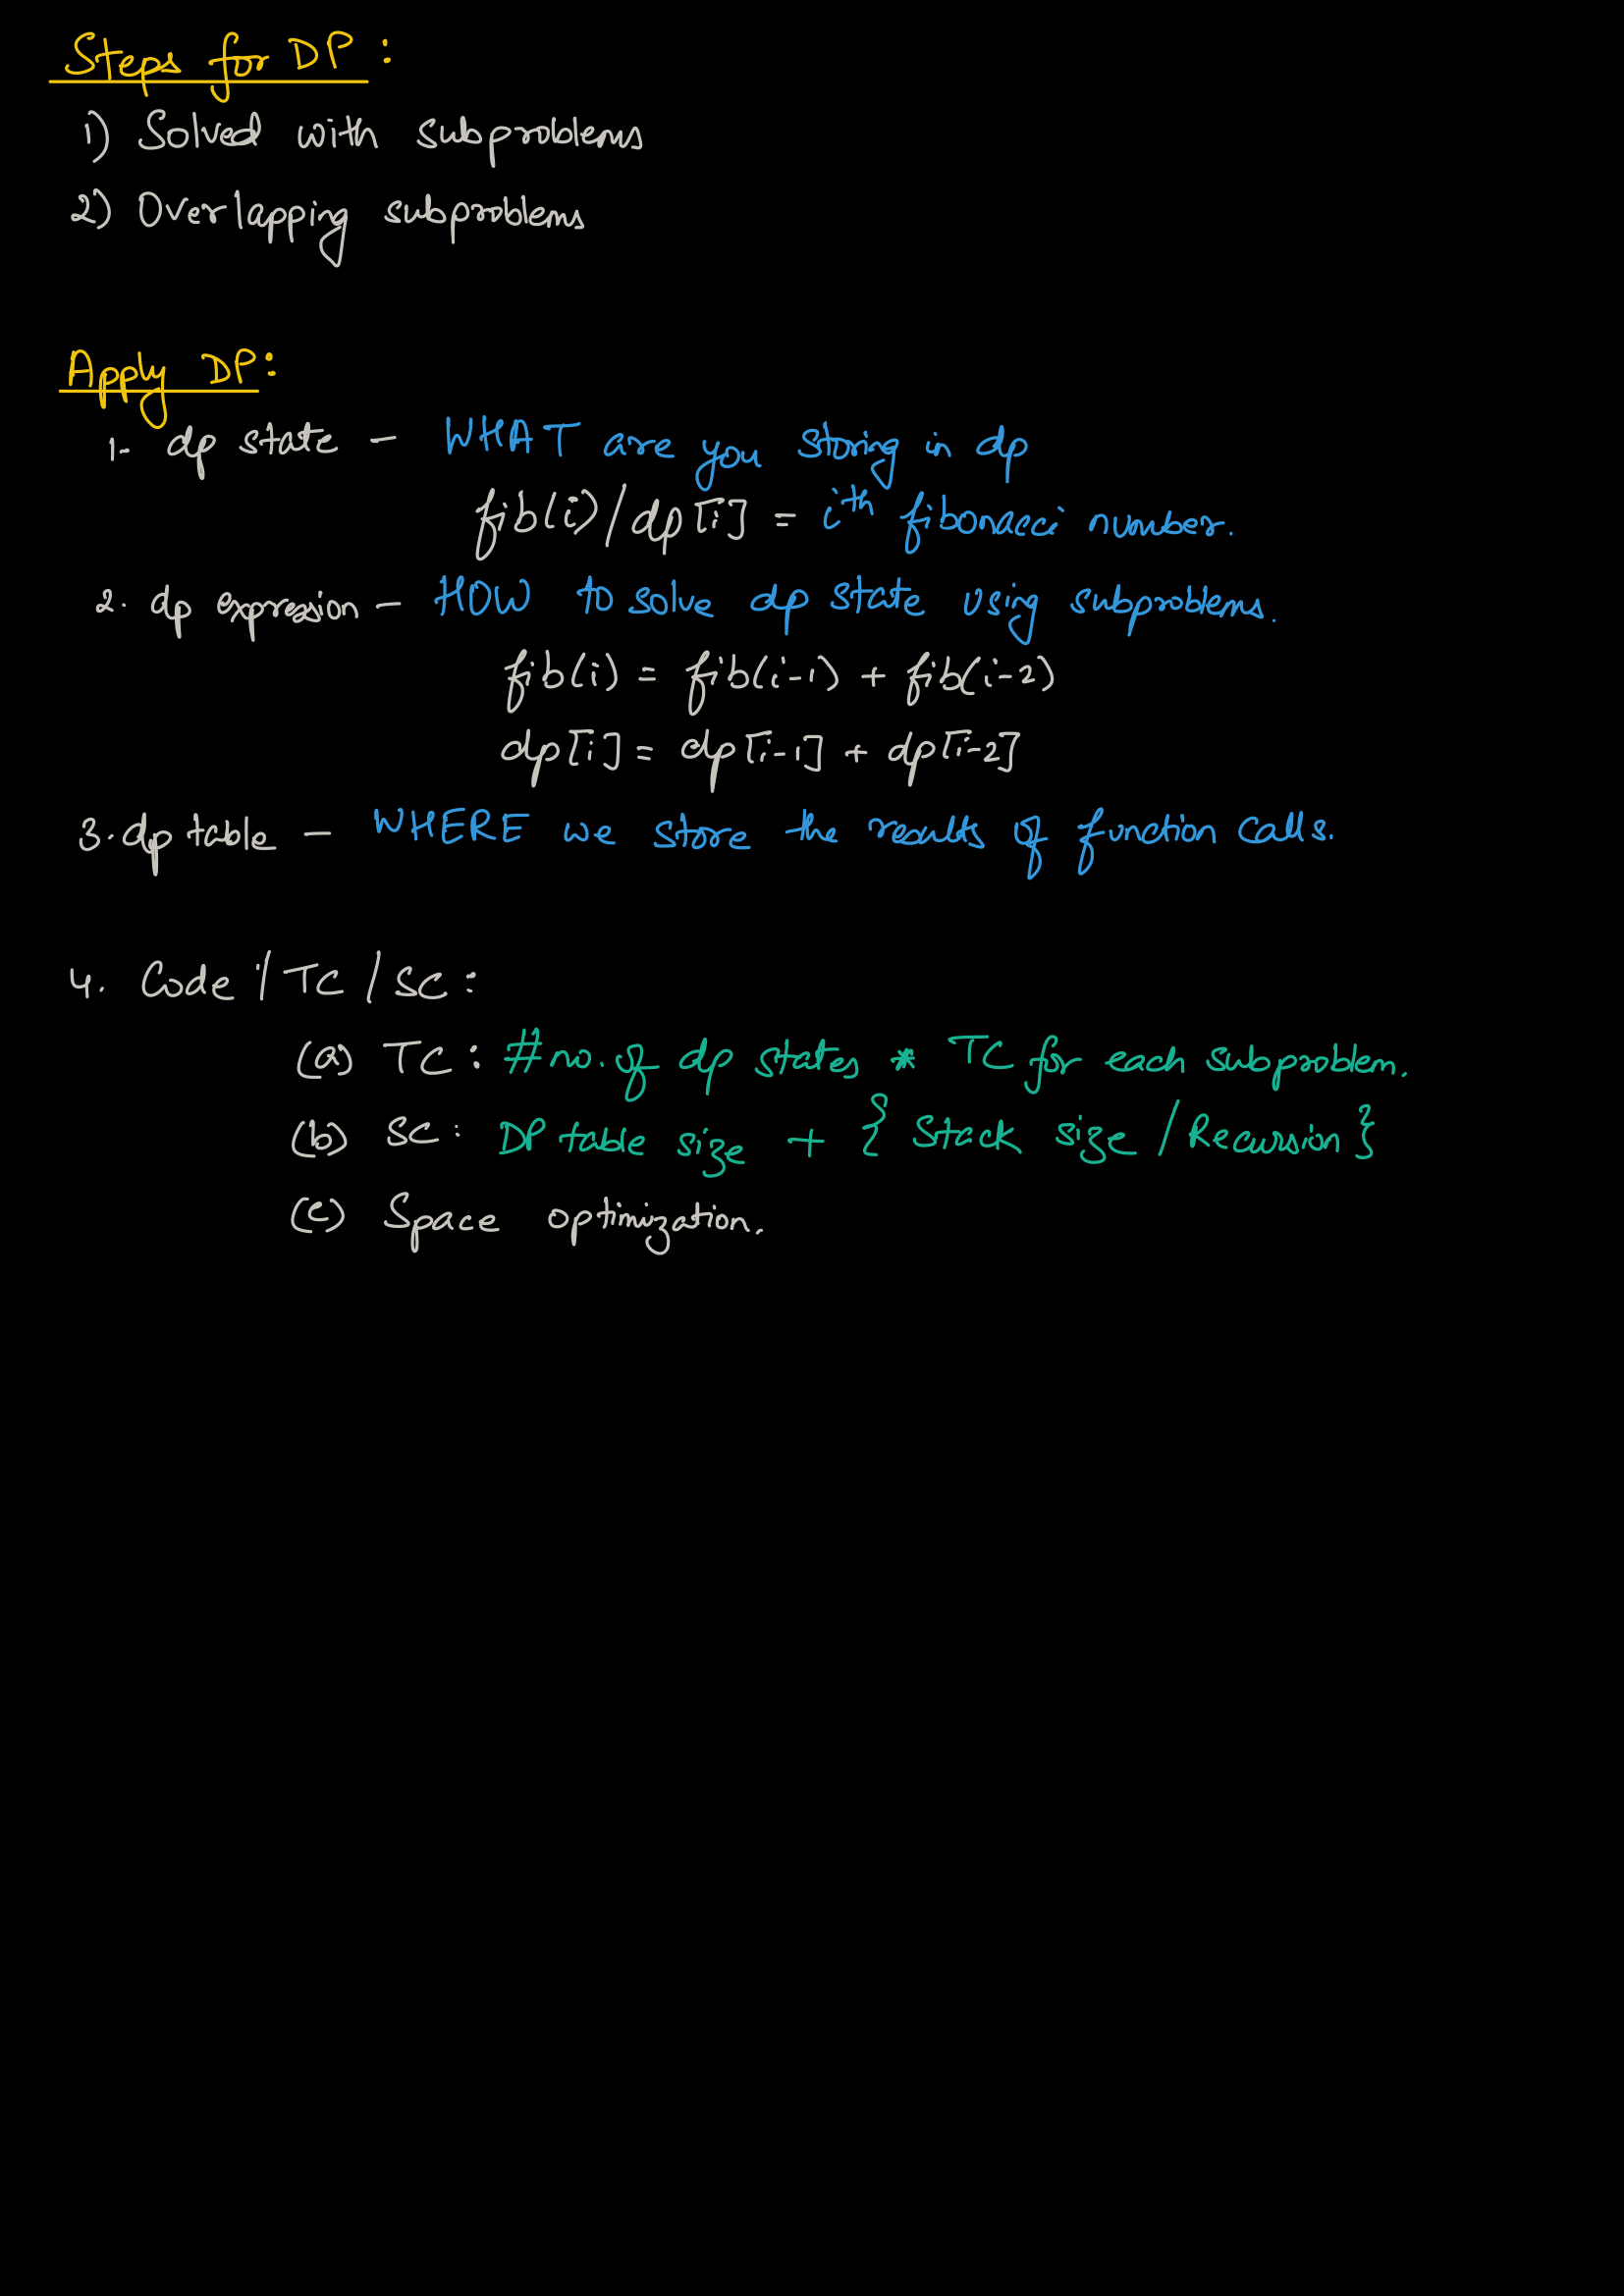 Steps for DP :
1) Solved with subproblems
2) Overlapping subproblems
Apply DP:
1. dp state - WHAT are you storing in dp
fib(i)/dp[i] = i^th fibonacci number.
2. dp expression - HOW to solve dp state using subproblems.
fib(i) = fib(i-1) + fib(i-2)
dp[i] = dp[i-1] + dp[i-2]
3. dp table - WHERE we store the results of function calls.
4. Code / TC / SC :
(a) TC : #no. of dp states * TC for each subproblem.
(b) SC : DP table size + { Stack size / Recursion }
(c) Space optimization.